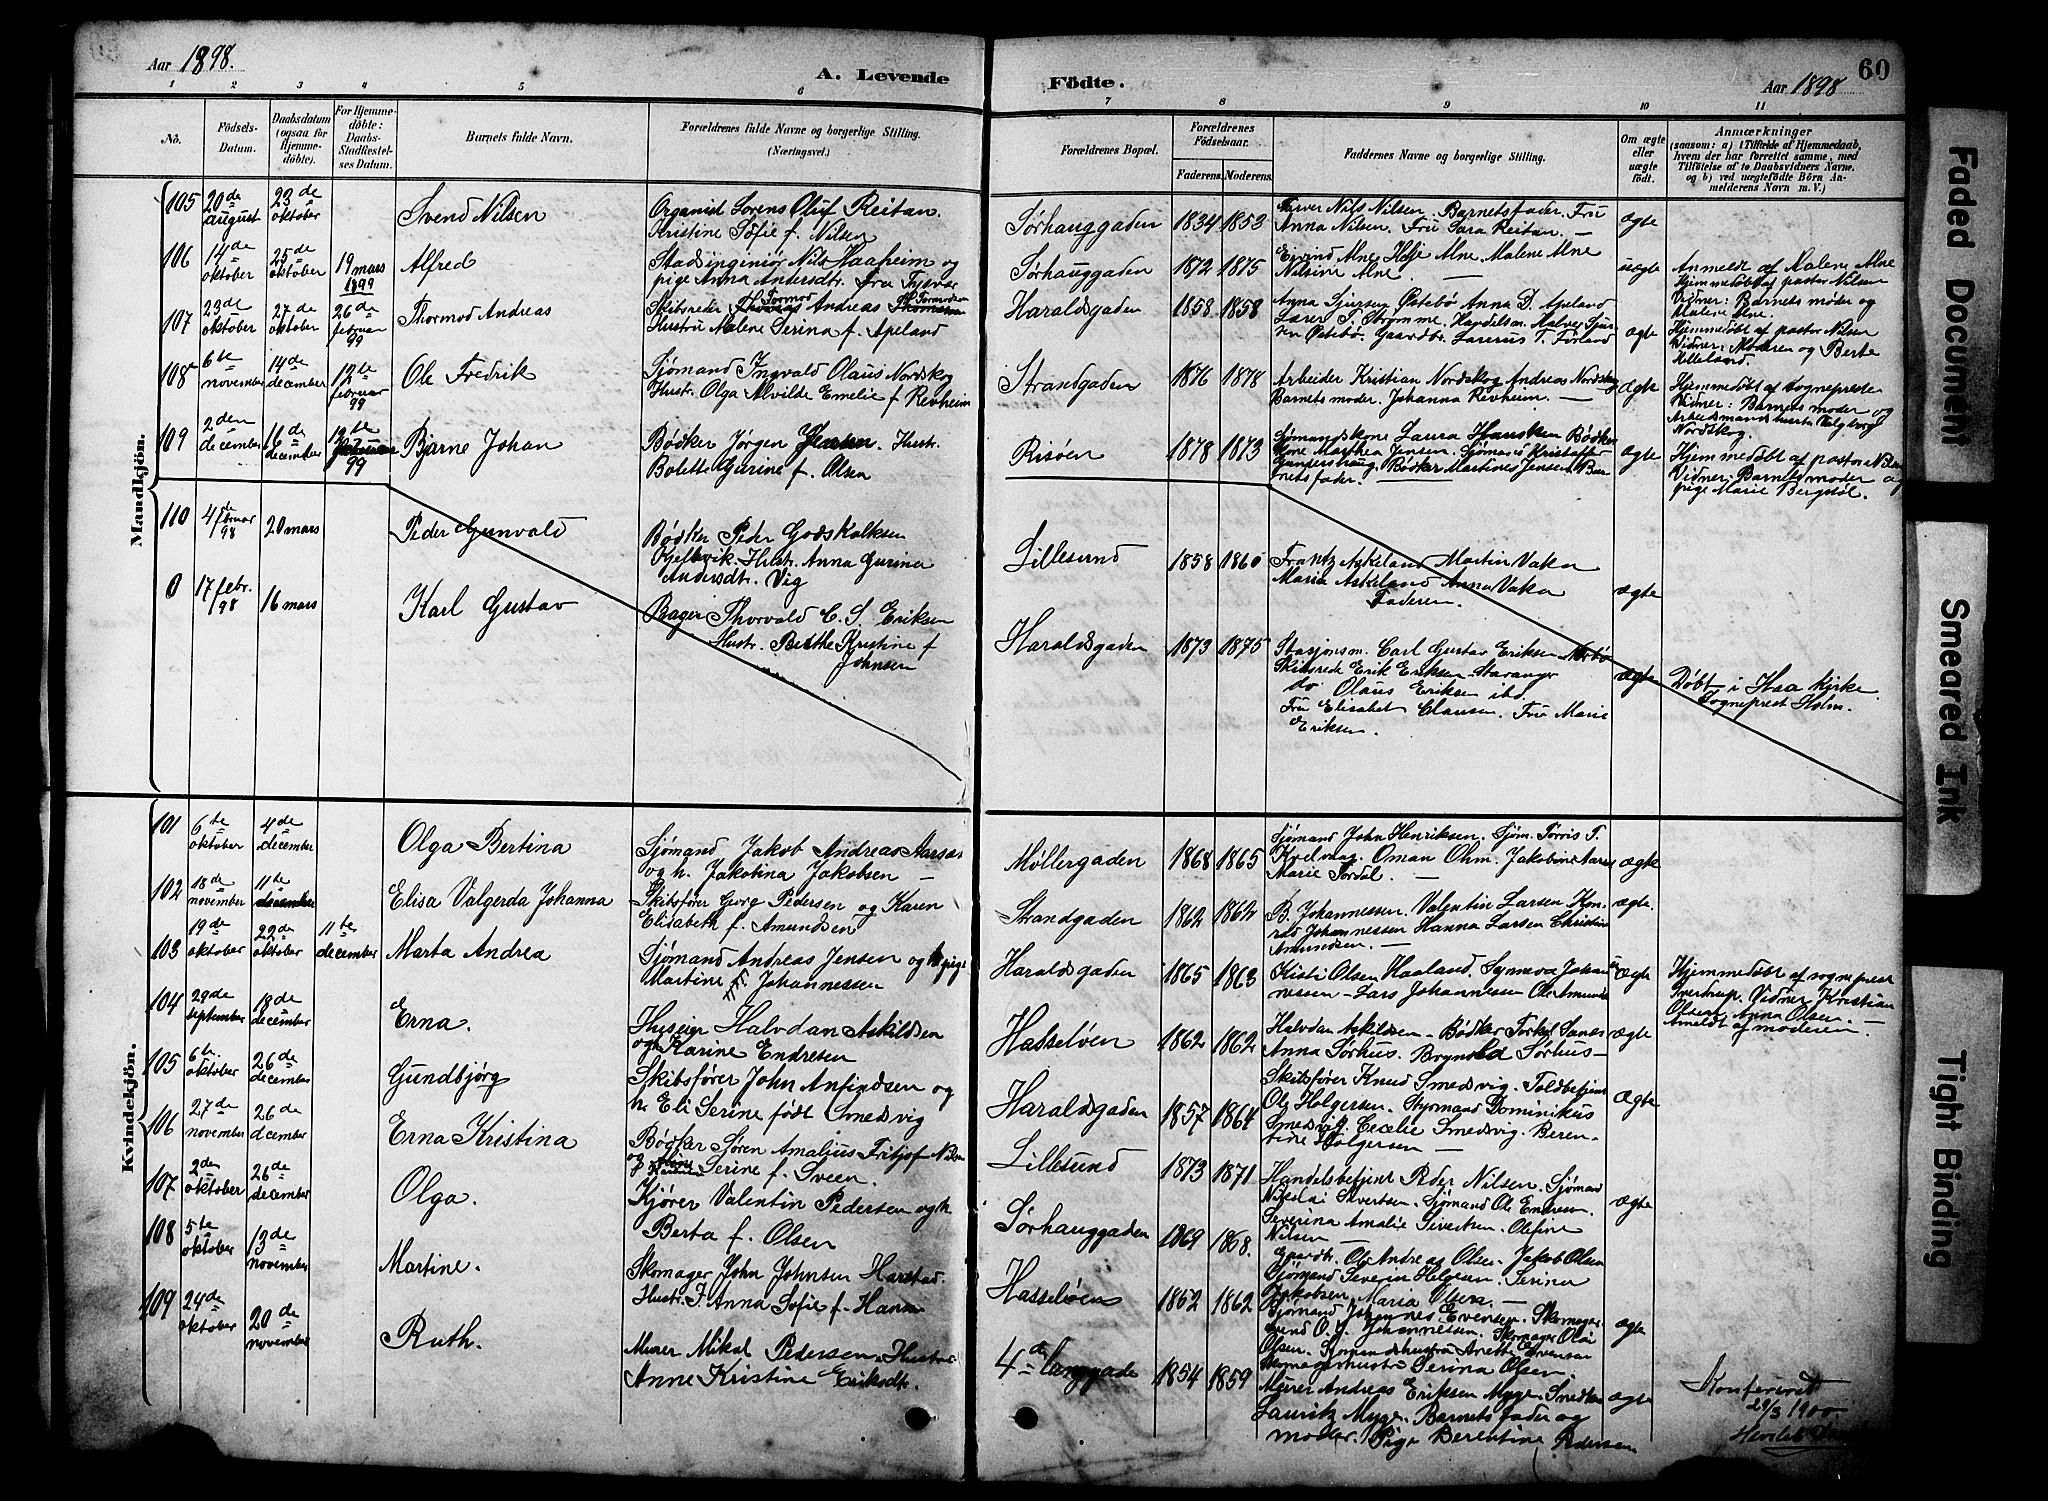 Aar 1898.
A. Levende
Födte.
Aar 1898
60
1 2 3 4 5 6 7 8 9 10 11
No.
Födsels-
Datum.
Daabsdatum
(ogsaa for
Hjemme-
döbte).
For Hjemme-
döbte:
Daabs-
Stadfæstel-
ses Datum.
Barnets fulde Navn.
Forældrenes fulde Navne og borgerlige Stilling.
(Næringsvei.)
Forældrenes Bopæl.
Forældrenes
Födselsaar.
Faderens. Moderens.
Faddernes Navne og borgerlige Stilling.
Om ægte
eller
uægte
födt.
Anmærkninger
(saasom: a) i Tilfælde af Hjemmedaab,
hvem der har forrettet samme, med
Tilföielse af to Daabsvidners Navne.
og b) ved uægtefödte Börn An-
melderens Navn m. V.)
Mandkjön.
105 20de august 23de oktober
Svend Nilsen
Organist Lorens Oluf Reitan.
Kristine Sofie f. Nilsen
Sørhauggaden 1834 1853
Nils Nilsen. Barnets fader. Fru
Anna Nilsen. Fru Sara Reitan. —
ægte
106 14de oktober 25de oktober 19 mars 1899
Alfred
Stadsingeniør Nils Haaheim og
pige Anna Andersdtr. fra Tysvær
Sørhauggaden 1872 1875
Eivind Alne Helje Alne. Malene Alne
Nilsine Alne. —
uægte
Anmeldt af Malene Alne
Hjemmedøbt af pastor Nilsen
Vidner: Barnets moder og
Malene Alne.
107 23de oktober 27de oktober 26de februar 99
Thormod Andreas
Skibsreder Tormod Andreas
Hustru Malene Serina f. Apeland
Haraldsgaden 1858 1858
Anna Sjursen Østebö Anna D. Apeland
Lærer T. Strømme. Handelsm. Sjur-
sen Østebö. Gaardbr. T. Førland
ægte
Hjemmedøbt af pastor Nilsen
Vidner: Moderen og Berte
Helleland.
108 6te november 14de december 12te februar 99
Ole Fredrik
Sjømand Ingvald Olaus Nordskog
Hustr. Olga Alvilde Emelie f. Revheim
Strandgaden 1876 1878
Arbeider Kristian Nordskog Andreas Nordskog
Barnets moder. Johanna Revheim. —
ægte
Hjemmedøbt af sogneprest
Vidner: Barnets moder og
Arbeidsmandshustru Valborg
Nordskog.
109 2den december december 12te 99
Bjarne Johan
Bødker Jørgen Jensen. Hustr.
Bolette Gurine f. Olsen
Risøen 1878 1873
Sjømandskone Laura Hansken Bødker
kone Marthea Jensen. Sjømand Kristoffer
Bødker Martines Jensen. Bar-
nets fader.
ægte
Hjemmedøbt af pastor Nilsen
Vidner: Barnets moder og
pige Marie Bergstøl.
110 4de februar 98 20 mars
Peder Gunvald
Bødker Peder Godskalksen
Kjellevik. Hustr. Anna Gurina
Andersdtr. Vig
Lillesund 1858 1860
Frantz Askeland Martin Vaka
Maria Askeland Anna Vaka
Faderen.
ægte
0 17 febr. 98 16 mars
Karl Gustav
Bager Thorvald C. S. Eriksen
Hustr. Berthe Kristine f
Johnsen
Haraldsgaden 1873 1875
Stasjonsm. Carl Gustav Eriksen Nærbö
Skibsrede Erik Eriksen Stavanger
do Olaus Eriksen ibd.
Fru Elisabet Clausen. Fru Marie
Eriksen.
ægte
Døbt i Haa kirke
Sogneprest Holm.
Kvindekjön.
101 6te oktober 4de december
Olga Bertina
Sjømand Jakob Andreas Aarsæs
og h. Jakobina Jakobsen —
Møllergaden 1868 1865
Sjømand John Henriksen. Sjøm.
Oman Ohm. Jakobine
Marie —
ægte
102 18de november 11te december
Elisa Valgerda Johanna
Skibsfører Georg Pedersen og Karen
Elisabeth f. Amundsen
Strandgaden 1862 1862
B. Johannessen. Valentin Larsen Kon-
rad Johannessen Hanna Larsen Christin
Amundsen. —
ægte.
103 19de oktober 22de oktober 11te december
Marta Andrea
Sjømand Andreas Jensen og pige
Martine Johannessen
Haraldsgaden 1865 1863
Kisti Olsen Haaland. Synneva Johan-
nessen — Lars Johannessen Ole
uægte
Hjemmedøbt af sogneprest
Sverdrup. Vidner Kristian
Olsen, Anna Olsen. —
Ameldt af moderen —
104 29de september 18de december
Erna.
Huseier Halvdan Askildsen
og h. Karine Endresen
Hasseløen 1862 1862
Halvdan Askildsen — Bødker Torkel
Anna Sørhus. Brynhild Sørhus —
ægte
105 6te oktober 26de december
Gundbjørg
Skibsfører John Anfindsen og
h. Eli Serine født Smedsvig
Haraldsgaden 1857 1864
Skibsfører Knud Smedsvig. Toldbetjent
Ole Holgersen. Styrmand Dominikus
Smedsvig. Cecelie Smedsvig. Beren-
tine Holgersen —
ægte
106 27de november 26de december
Erna Kristina
Bødker Søren Amalius Fritjof Nilsen
og Serine f. Sveen.
Lillesund 1873 1871
Handelsbetjent Peder Nilsen. Sjømand
Nikolai Sivertsen. Sjømand Ole Endresen.
Severina Amalie Sivertsen. Olefine
Nilsen —
ægte
107 2den oktober 26de december
Olga.
Kjører Valentin Pedersen og h.
Berta f. Olsen
Sørhauggaden 1869 1868.
Gaardbr. Ole Andreas Olsen. Jakob Olsen
Sjømand Severin Helgesen. Serine
Jakobsen Maria Olsen. —
108 5te oktober 13de november
Martine.
Skomager John Johnsen Harstad.
Hustr. J. Anna Sofie f. Hansen
Hasseløen 1862 1862
Sjømand Johannes Evensen. Skomager-
svend O. J. Johannessen. Skomager Olai
Olsen. Anette Evensen
Skomagerhustru Serina Olsen.
ægte
109 24de oktober 20de november
Ruth.
Murer Mikal Pedersen. Hustru
Anne Kristine Eriksdtr.
4de langgade 1854 1859
Murer Andreas Eriksen Myge. Smedkar
Lauritz Myge. Barnets fader og
moder. Pige Berentine Pedersen
ægte
Konfereret
29/3 1900.
Faded Document
Smeared Ink
Tight Binding